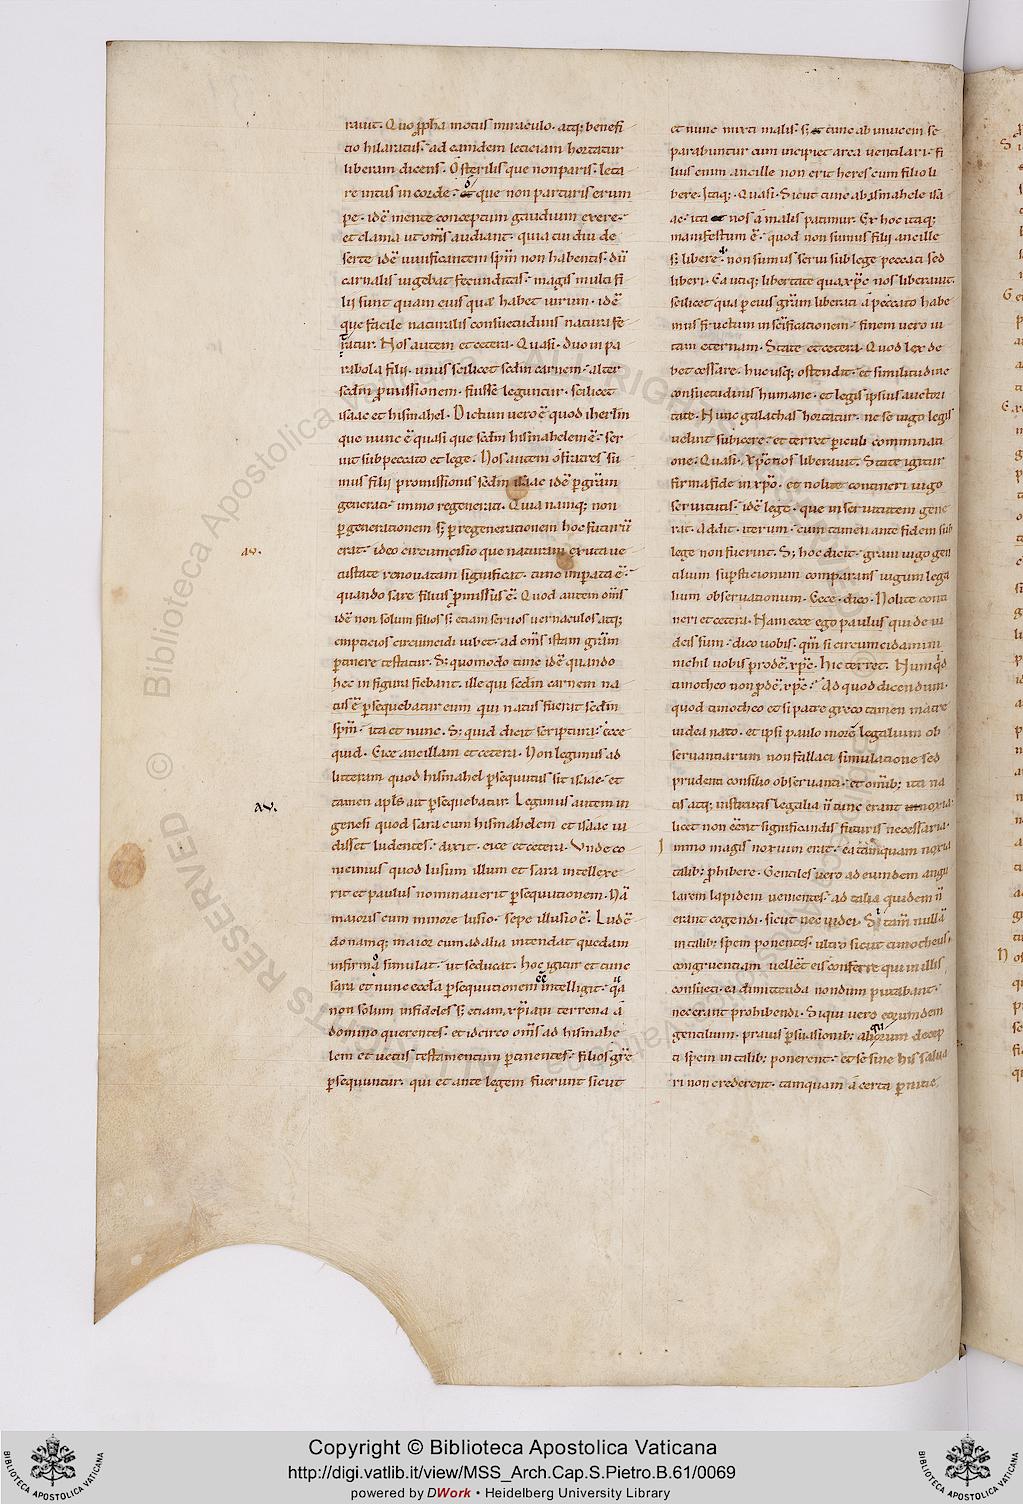 rauit. Quo ꝓpha motus miraculo. atq; benefi
cio hilaratus. ad eamdem leticiam hortatur
liberam dicens. O sterilis que non paris. leta
re intus in corde. et o que non parturis erum
pe. idē mente conceptum gaudium exere.
et clama ut om̄s audiant. quia tui diu de
serte idē uiuificantem sp̄m non habentis. dū
carnalis uigebat fecunditas. magis multi fi
lii sunt quam eius quae habet uirum. idē
que facile naturalis consuetudinis natura fe
ratur. Nos autem et cetera. Quasi. duo in pa
rabola filii. unus scilicet scdm carnem. alter
scdm ꝓmissionem. fuisse leguntur. scilicet
isaac et hismahel. Dictum uero ē quod ihrlm
que nunc ē quasi que scdm hismahelem ē. ser
uit sub peccato et lege. Nos autem o fratres su
mus filii promissionis scdm isaac idē ꝑ grām
generati. immo regenerati. Quia namq; non
ꝑ generationem s; ꝑ regenerationem hoc futurū
erat. ideo circumcisio que naturam exuta ue
tustate renouatam significat. tunc imperata ē.
quando sare filius ꝓmissus ē. Quod autem om̄s
idē non solum filios s; etiam seruos uernaculos atq;
empticios circumcidi iubet. ad om̄s istam grām
ꝑtinere testatur. S; quomodo tunc idē quando
hec in figura fiebant. ille qui scdm carnem na
tus ē ꝑsequebatur eum qui natus fuerat scdm
sp̄m. ita et nunc. S; quid dicit scriptura. Ecce
quid. Eice ancillam et cetera. Non legimus ad
litteram quod hismahel ꝑsequutus sit isaac. et
tamen apls ait ꝑsequebatur. Legimus autem in
genesi quod sara cum hismahelem et isaac ui
disset ludentes. dixit. eice et cetera. Unde co
nicimus quod lusum illum et sara intellexe
rit et paulus nominauerit ꝑsequutionem. Nā
maioris cum minore lusio. sepe illusio ē. Ludē
do namq; maior cum ad alia intendat quedam
infirma simulat. ut seducat. hoc igitur et tunc
sara et nunc eccla ꝑsequutionem eē intelligit. qā
non solum infideles s; etiam xp̄iani terrena a
domino querentes. et idcirco om̄s ad hismahe
lem et uetus testamentum ꝑtinentes. filios grē
ꝑsequuntur. qui et ante legem fuerunt sicut
aṽ.
aṽ.
et nunc mixti malis. s; et tunc ab inuicem se
parabuntur cum incipiet area uentilari. fi
lius enim ancille non erit heres cum filio li
bere. Itaq;. Quasi. Sicut tunc ab ismahele isa
ac. ita et nos a malis patimur. Ex hoc itaq;
manifestum ē. quod non sumus filii ancille
s; libere. non sumus serui sub lege peccati sed
liberi. Ea utiq; libertate qua xp̄c nos liberauit.
scilicet qua ꝑ eius grām liberati a peccato habe
mus fructum in scificationem. finem uero ui
tam eternam. State et cetera. Quod lex de
bet cessare. hucusq; ostendit. et similitudine
consuetudinis humane. et legis ipsius auctori
tate. Nunc galathas hortatur. ne se iugo legis
uelint subicere. et terret ꝑiculi comminati
one. Quasi. Xp̄c nos liberauit. State igitur
firma fide in xp̄o. et nolite contineri iugo
seruitutis. idē lege. que in seruitutem gene
rat. Addit. iterum. cum tamen ante fidem sub
lege non fuerint. S; hoc dicit. graui iugo gen
tilium suꝑsticionum comparans iugum lega
lium obseruationum. Ecce. dico. Nolite conti
neri et cetera. Nam ecce ego paulus qui de iu
deis sum. dico uobis. qm̄ si circumcidamini
nichil uobis prodē. xp̄c. hic terret. Numqd
timotheo non ꝓdē. xp̄c. Ad quod dicendum.
quod timotheo et si patre greco tamen matre
iudea nato. et ipsi paulo morē legalium ob
seruantiarum non fallaci simulatione sed
prudenti consilio obseruanti. et omib; ita na
tis atq; institutis legalia n̄ tunc erant noxia.
licet non eēnt significandis futuris necessaria.
Immo magis noxium erat. ea tamquam noxia
talib; ꝓhibere. Gentiles uero ad eundem angu
larem lapidem uenientes. ad talia quidem n̄
erant cogendi. sicut nec iudei. Si tam̄ nullā
in talib; spem ponentes. ultro sicut timotheus.
congruentiam uellēt eis conferre qui in illis
consueti. ea dimittenda nondum putabant.
nec erant prohibendi. Si qui uero eorumdem
gentilium. prauis ꝑsuasionib; aliorum decep
ti spem in talib; ponerent. et se sine his salua
ri non crederent. tamquam a certa ꝑnitie
© Biblioteca Apostolica Vaticana ALL RIGHTS RESERVED
Copyright © Biblioteca Apostolica Vaticana
http://digi.vatlib.it/view/MSS_Arch.Cap.S.Pietro.B.61/0069
powered by DWork • Heidelberg University Library
BIBLIOTECA APOSTOLICA VATICANA
BIBLIOTECA APOSTOLICA VATICANA